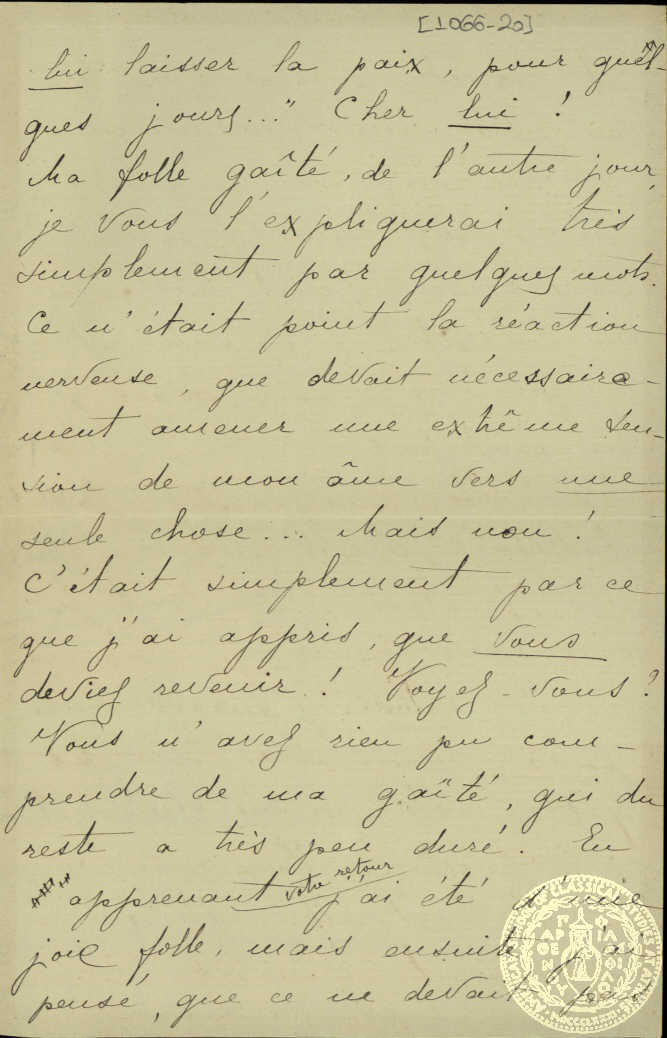 [1066-20]
lui laisser la paix, pour quel-
ques jours..." Cher lui !
Ma folle gaîté, de l'autre jour,
je vous l'expliquerai très
simplement par quelques mots.
Ce n'était point la réaction
nerveuse, que devait nécessaire-
ment amener une extrême ten-
sion de mon âme vers une
seule chose... Mais non !
C'était simplement par ce
que j'ai appris, que vous
deviez revenir ! Voyez-vous ?
Vous n'avez rien pu com-
prendre de ma gaîté, qui du
reste a très peu duré. En
apprenant votre rétour j'ai été d'une
joie folle, mais ensuite j'ai
pensé, que ce ne devait pas